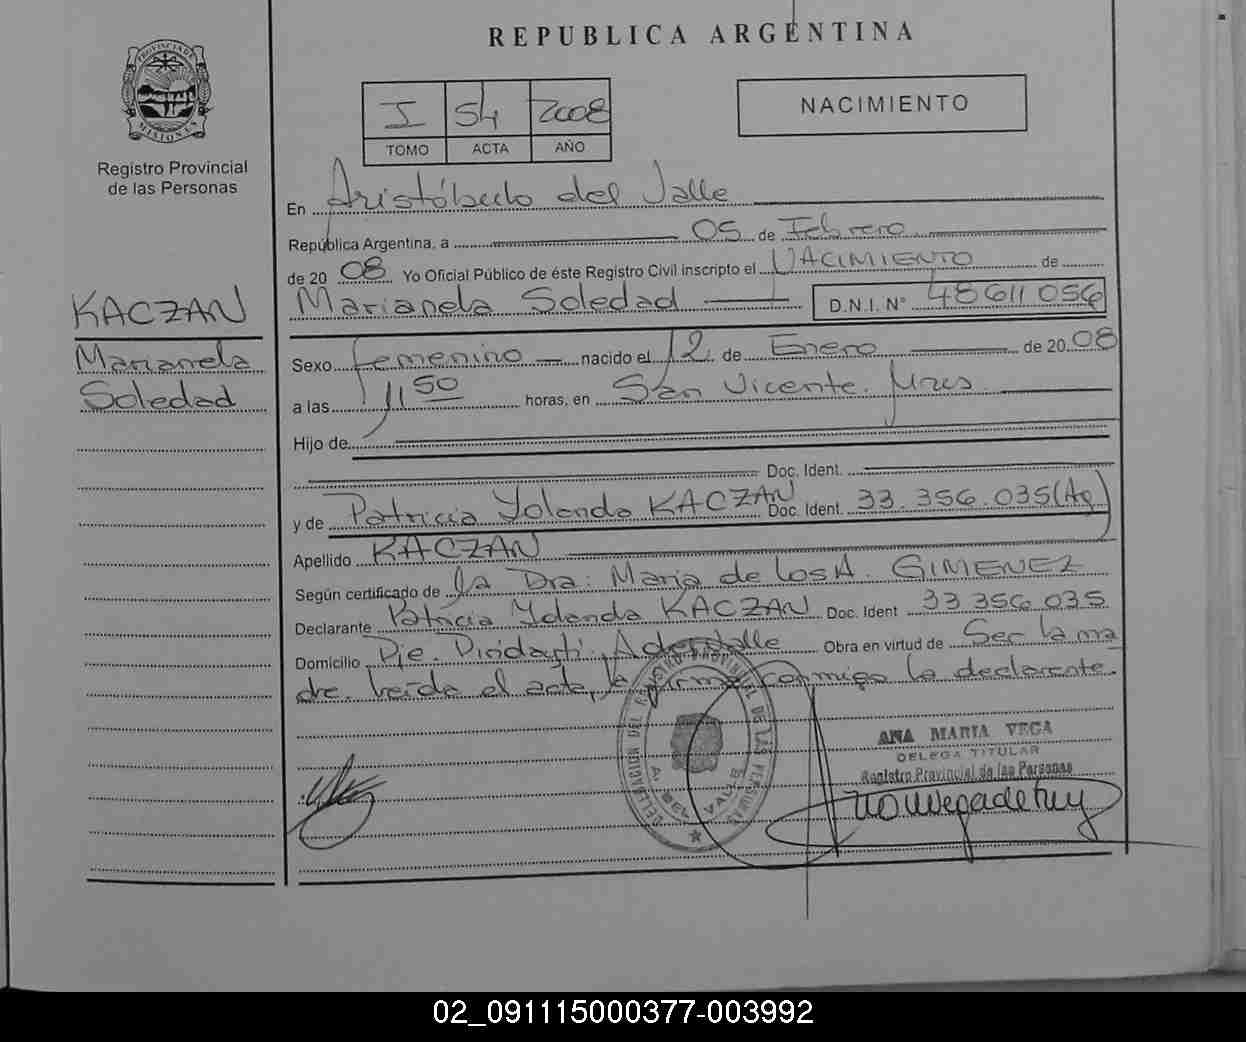 REPUBLICA ARGENTINA
PROVINCIA DE
MISIONES
Registro Provincial
de las Personas
I 54 2008
TOMO ACTA AÑO
NACIMIENTO
En Aristóbulo del Valle
República Argentina, a 05 de Febrero
de 20 08 Yo Oficial Público de éste Registro Civil inscripto el NACIMIENTO de
Marianela Soledad D.N.I. N° 48611056
KACZAN
Marianela
Soledad
Sexo femenino nacido el 12 de Enero de 20 08
a las 11 50 horas, en San Vicente. Mnes
Hijo de
Doc. Ident.
y de Patricia Yolanda KACZAN Doc. Ident. 33.356.035 (Ag)
Apellido KACZAN
Según certificado de la Dra: Maria de los A. GIMENEZ
Declarante Patricia Yolanda KACZAN Doc. Ident 33 356 035
Domicilio Pje. A del Valle Obra en virtud de Ser la ma
dre. leída el acta, la firma conmigo la declarante.
DELEGACION DEL REGISTRO PROVINCIAL DE LAS PERSONAS
A. DEL VALLE
ANA MARIA VEGA
DELEGA TITULAR
Registro Provincial de las Personas
02_091115000377-003992